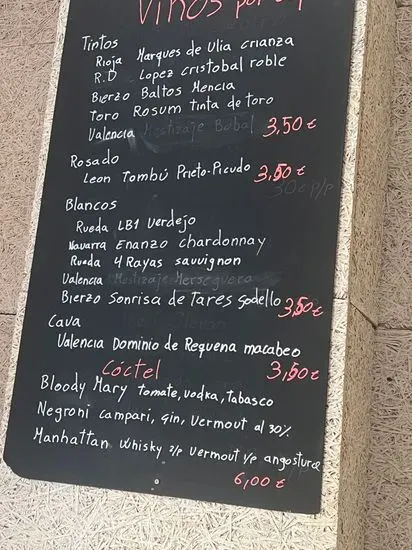 Vinos por
Tintos
Rioja Marques de Ulia crianza
R.D Lopez cristobal roble
Bierzo Baltos Mencia
Toro Rosum tinta de toro
Valencia Mestizaje Bobal 3,50 €
Rosado
Leon Tombú Prieto-Picudo 3,50 €
Blancos
Rueda LB1 Verdejo
Navarra Enanzo chardonnay
Rueda 4 Rayas sauvignon
Valencia Mestizaje Merseguera
Bierzo Sonrisa de Tares godello 3,50 €
Cava
Valencia Dominio de Requena macabeo
3,50 €
Cóctel
Bloody Mary tomate, vodka, tabasco
Negroni campari, gin, vermout al 30%
Manhattan whisky 2/p vermout 1/p angostura
6,00 €